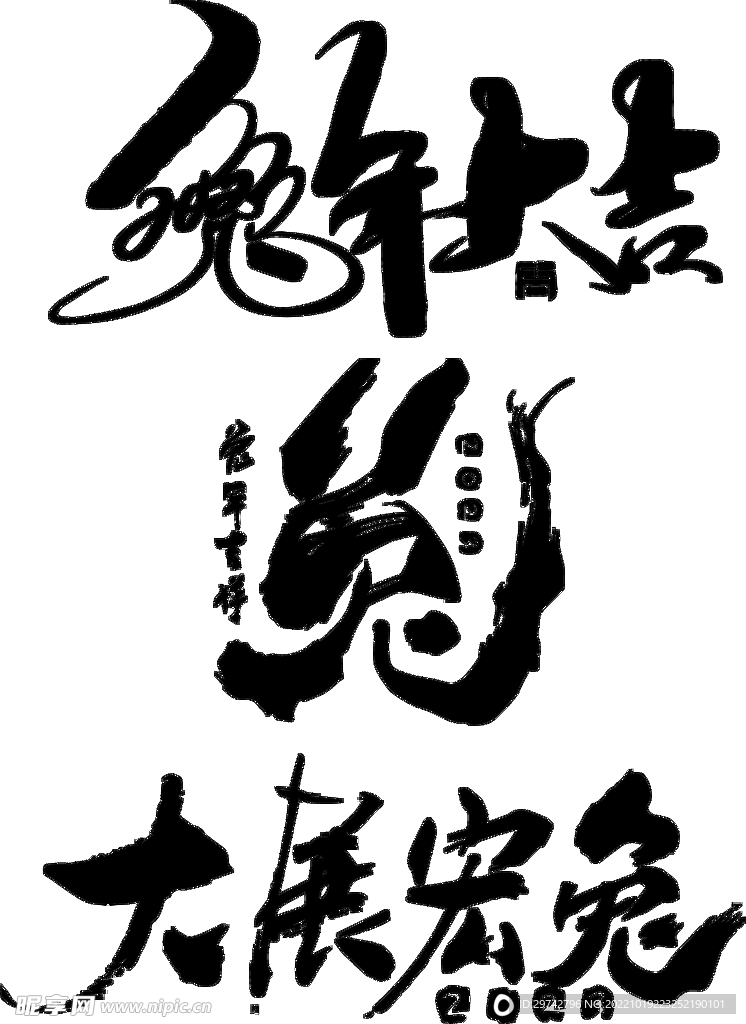 兔年大吉
兔
兔年吉祥
2023
大展宏兔
昵享网 www.nipic.cn
ID:29742796 NO:20221019223252190101